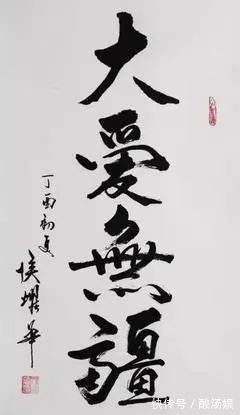 大愛無疆
丁酉初夏
侯耀華
快传号/酸汤娱